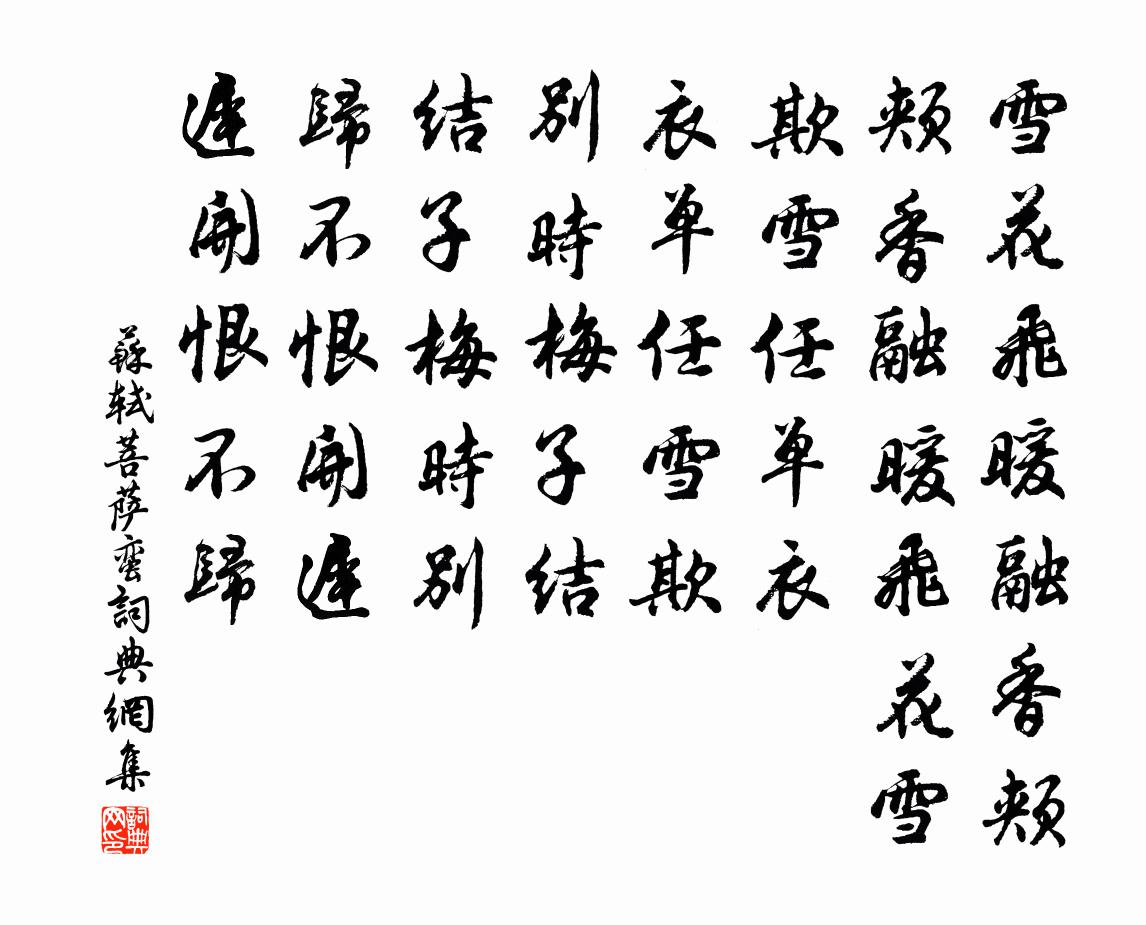 雪花飛暖融香頰
頰香融暖飛花雪
欺雪任单衣
衣单任雪欺
別時梅子结
结子梅時別
歸不恨開遲
遲開恨不歸
蘇轼菩萨蛮詞典網集
詞典网印